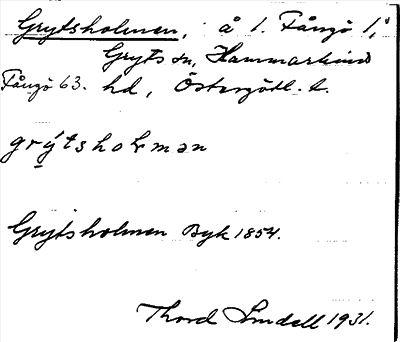 Grytsholmen, å 1. Fångö 1,
Gryts sn, Hammarkinds
Fångö 63. hd, Östergötl. l.
grýtsholmən
Grytsholmen Byk 1854.
Thord Lindell 1931.